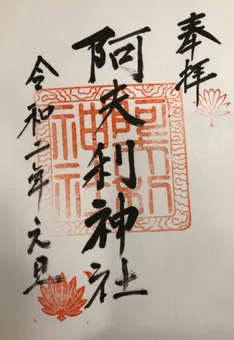 奉拝
阿夫利神社
令和二年元旦